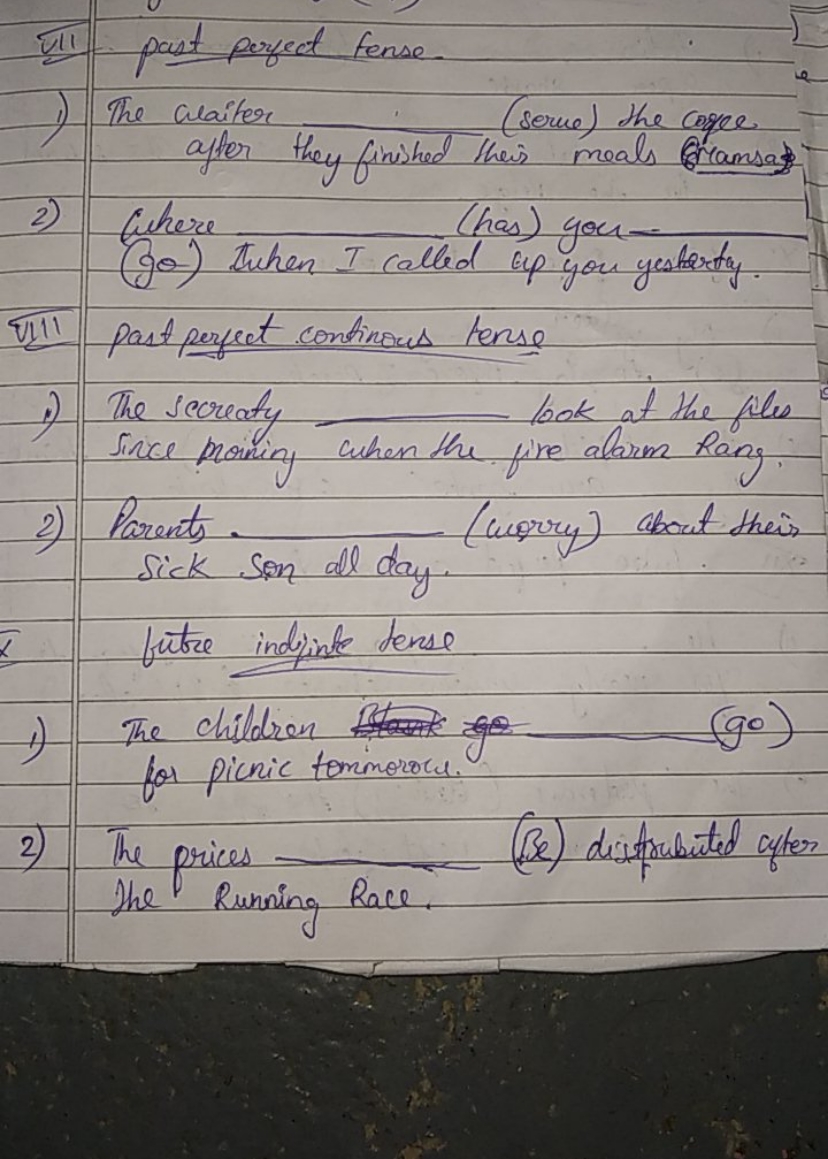 VII past perfect tense
1) The waiter ________ (serve) the coffee
after they finished their meals
2) Where ________ (has) you ________
(go) when I called up you yesterday.
VIII past perfect continous tense
1) The secreaty ________ look at the files
Since morning when the fire alarm Rang.
2) Parents ________ (worry) about their
Sick Son all day.
futre indifinte tense
1) The children ________ (go)
for picnic tommorow.
2) The prices ________ (Be) distrubuted after
the Running Race.